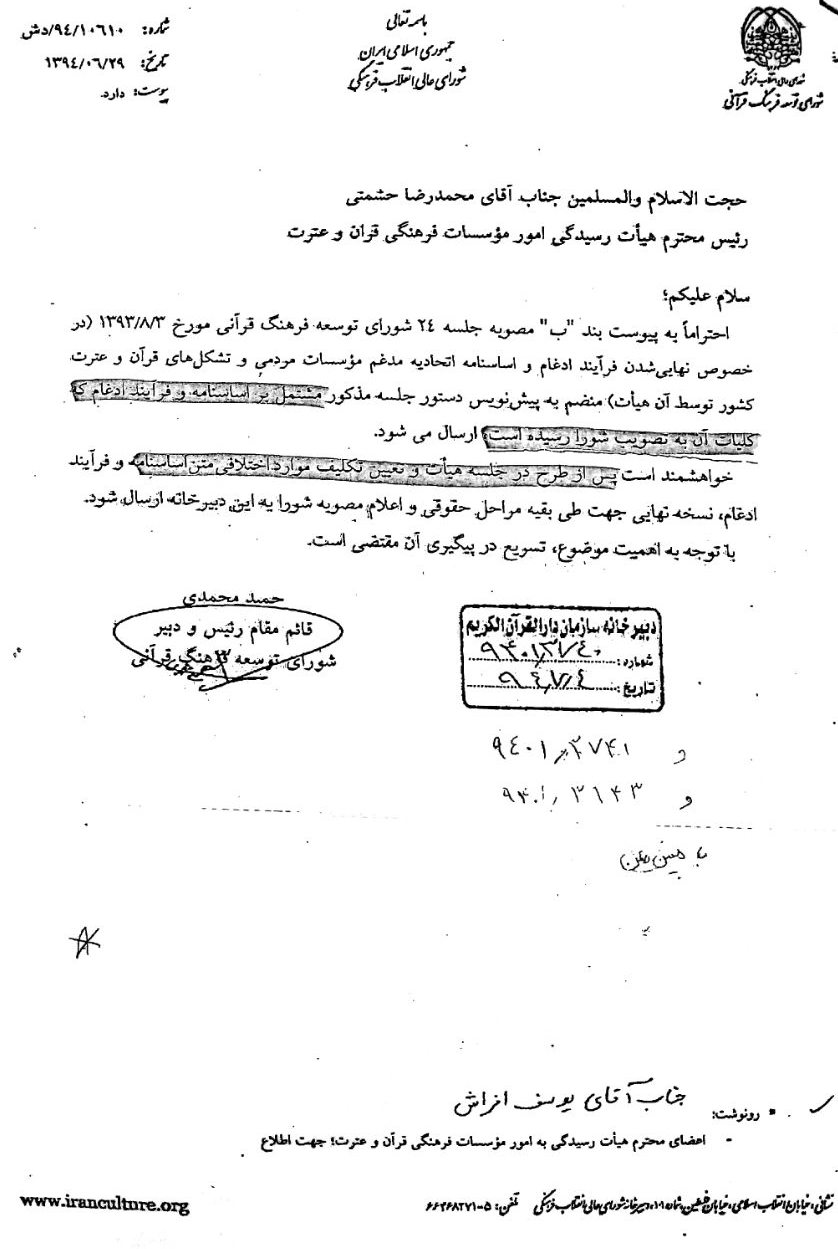 باسمه تعالی
جمهوری اسلامی ایران
شورای عالی انقلاب فرهنگی
شماره: ۹٤/۱۰٦۱۰/دش
تاریخ: ۱۳۹٤/۰٦/۲۹
پیوست: دارد.
شورای عالی انقلاب فرهنگی
شورای توسعه فرهنگ قرآنی
حجت الاسلام والمسلمین جناب آقای محمدرضا حشمتی
رئیس محترم هیأت رسیدگی امور مؤسسات فرهنگی قرآن و عترت
سلام علیکم؛
احتراماً به پیوست بند "ب" مصوبه جلسه ۲٤ شورای توسعه فرهنگ قرآنی مورخ ۱۳۹۳/۸/۳ (در
خصوص نهایی‌شدن فرآیند ادغام و اساسنامه اتحادیه مدغم مؤسسات مردمی و تشکل‌های قرآن و عترت
کشور توسط آن هیأت) منضم به پیش‌نویس دستور جلسه مذکور مشتمل بر اساسنامه و فرآیند ادغام که
کلیات آن به تصویب شورا رسیده است؛ ارسال می شود.
خواهشمند است پس از طرح در جلسه هیأت و تعیین تکلیف موارد اختلافی متن اساسنامه و فرآیند
ادغام، نسخه نهایی جهت طی بقیه مراحل حقوقی و اعلام مصوبه شورا به این دبیرخانه ارسال شود.
با توجه به اهمیت موضوع، تسریع در پیگیری آن مقتضی است.
حمید محمدی
قائم مقام رئیس و دبیر
شورای توسعه فرهنگ قرآنی
دبیرخانه سازمان دارالقرآن الکریم
شماره:
تاریخ: ۹٤/۷/٤
و ۹٤۰۱/۳۷۴۱
و ۹۴۰۱/۳۱۴۳
جناب آقای یوسف افراش
رونوشت:
- اعضای محترم هیأت رسیدگی به امور مؤسسات فرهنگی قرآن و عترت؛ جهت اطلاع
نشانی: خیابان انقلاب اسلامی، خیابان فلسطین، شماره ۱۰۱، دبیرخانه شورای عالی انقلاب فرهنگی تلفن: ۵-۶۶۴۶۸۲۷۱
www.iranculture.org